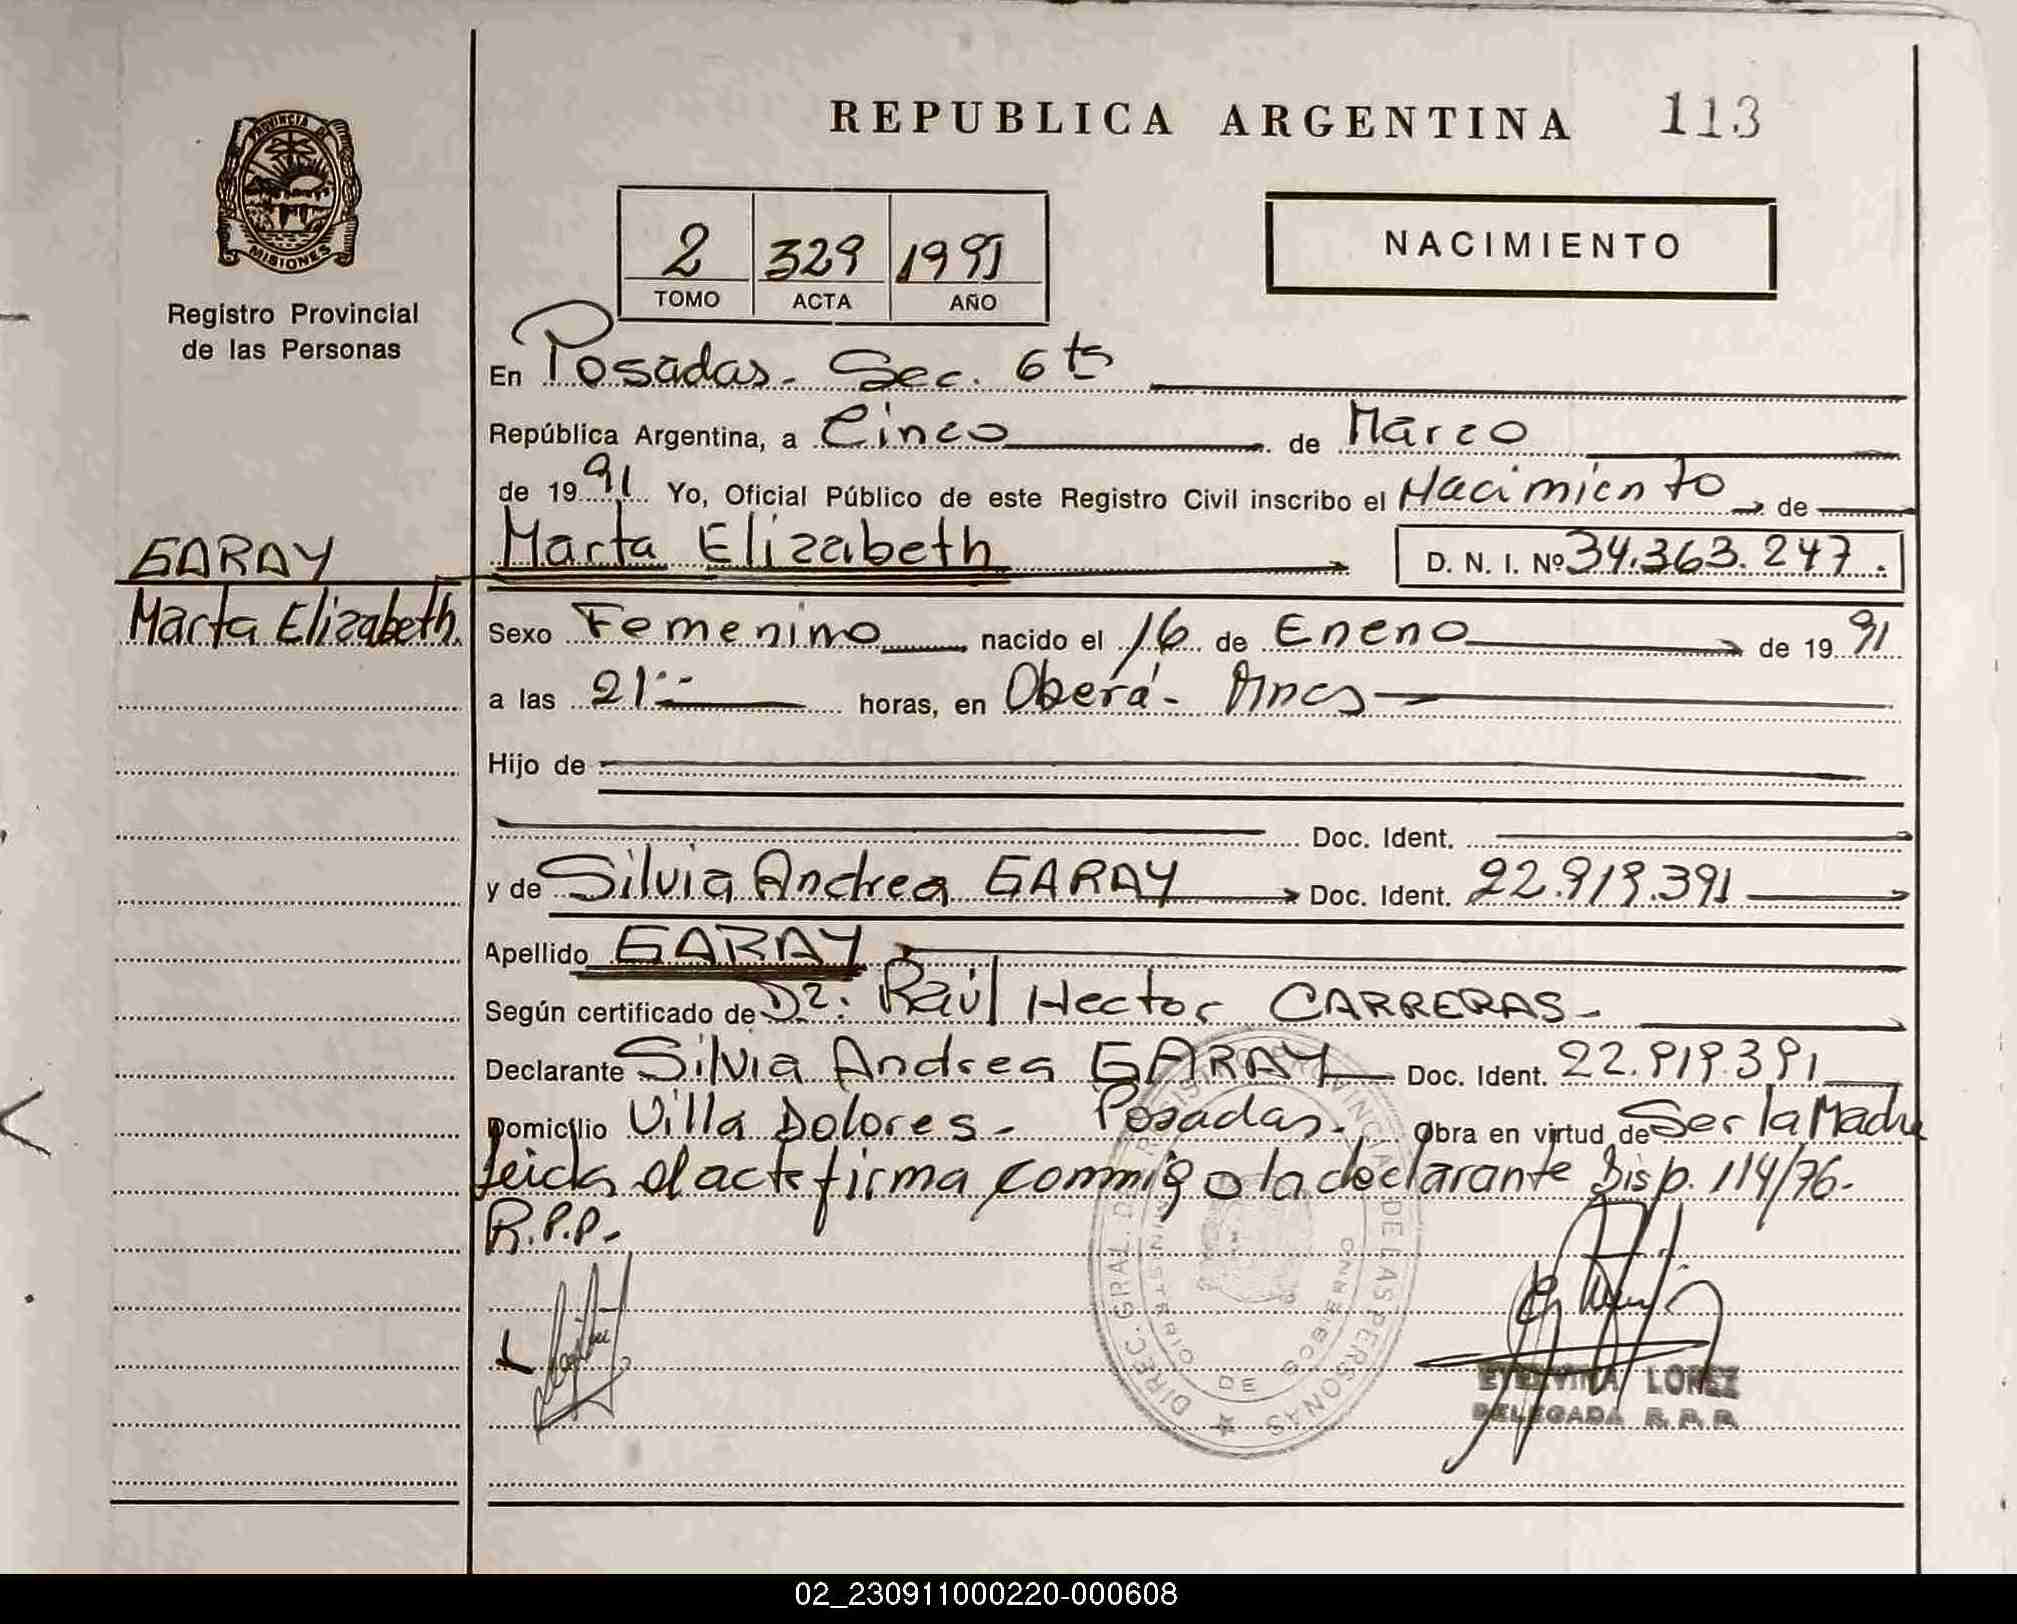 REPUBLICA ARGENTINA 113
PROVINCIA DE
MISIONES
Registro Provincial
de las Personas
2 329 1991
TOMO ACTA AÑO
NACIMIENTO
En Posadas - Sec. 6ta
República Argentina, a Cinco de Marzo
de 1991 Yo, Oficial Público de este Registro Civil inscribo el Nacimiento de
GARAY
Marta Elizabeth.
Marta Elizabeth D. N. I. Nº 34.363.247.
Sexo Femenino nacido el 16 de Enero de 1991
a las 21:- horas, en Oberá - Mnes
Hijo de
Doc. Ident.
y de Silvia Andrea GARAY Doc. Ident. 22.919.391
Apellido GARAY
Según certificado de Dr. Raúl Hector CARRERAS -
Declarante Silvia Andrea GARAY Doc. Ident. 22.919.391
Domicilio Villa Dolores - Posadas. Obra en virtud de Ser la Madre
leida el acta firma conmigo la declarante Disp. 114/76.
R.P.P.
DIREC. GRAL. DEL REGISTRO PROVINCIAL DE LAS PERSONAS
MINISTERIO DE GOBIERNO
LOPEZ
DELEGADA R.P.P.
02_230911000220-000608